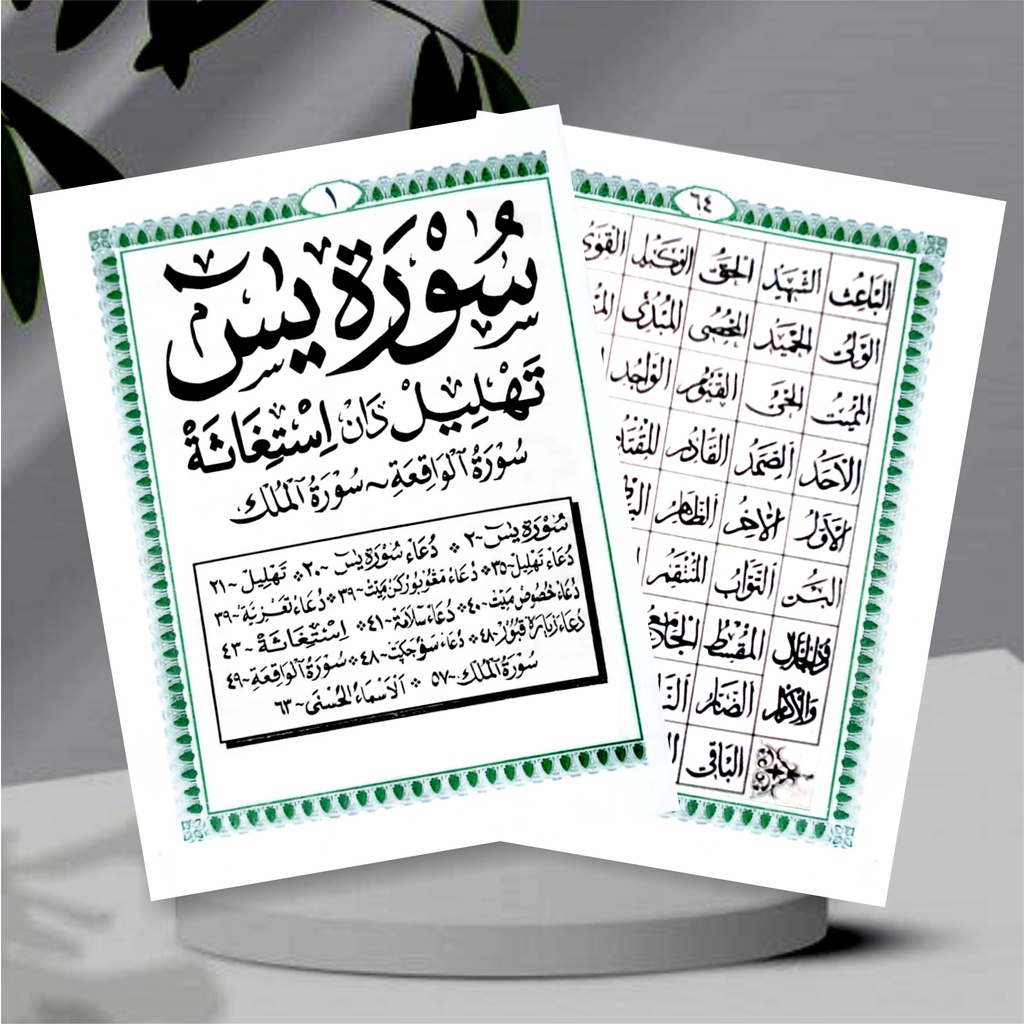 ١
سُوْرَة يٰسٓ
تَهْلِيْل دَانْ اِسْتِغَاثَةْ
سُوْرَةُ الْوَاقِعَةِ ~ سُوْرَةُ الْمُلْك
سُوْرَة يٰسٓ ~٢ * دُعَاء سُوْرَة يٰسٓ ~٢٠ * تَهْلِيْل ~٢١
دُعَاء تَهْلِيْل ~٣٥ * دُعَاء مَغُوْبُوْركَنْ مَيِّتْ ~٣٩ * دُعَاء تَعْزِيَة ~٣٩
دُعَاء خُصُوْص مَيِّتْ ~٤٠ * دُعَاء سَلَامَة ~٤١ * اِسْتِغَاثَة ~٤٣
دُعَاء زِيَارَة قُبُوْر ~٤٨ * دُعَاء ~٤٨ * سُوْرَةُ الْوَاقِعَة ~٤٩
سُوْرَةُ الْمُلْك ~٥٧ * اَلْاَسْمَاءُ الْحُسْنٰى ~٦٣
٦٤
الباعث الشهيد الحق الوكيل القوي
الولي الحميد المحصي المبدئ
المميت الحي القيوم الواجد
الأحد الصمد القادر
الأول الآخر الظاهر
البر التواب المنتقم
ذوالجلال والإكرام المقسط الجامع
الضار
الباقي